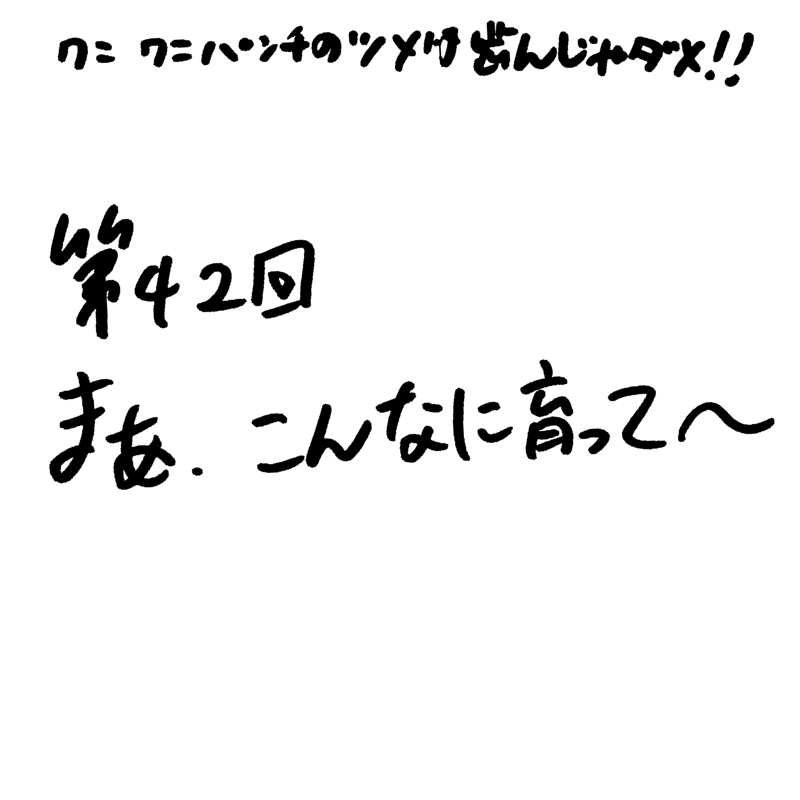 ワニワニパンチのツメは歯んじゃダメ!!
第42回
まあ.こんなに育って〜